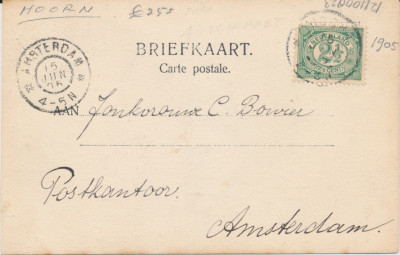 HOORN £25.-
1905
BRIEFKAART.
Carte postale.
AMSTERDAM
15
JUN
05
4-5N
NEDERLAND
2½
AAN Jonkvrouwe C. Bowier
Postkantoor.
Amsterdam.